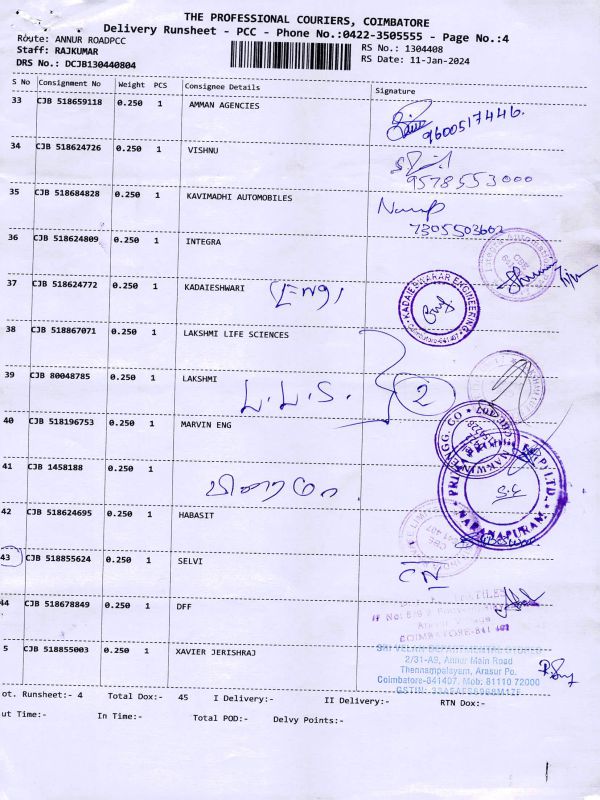 THE PROFESSIONAL COURIERS, COIMBATORE
Delivery Runsheet - PCC - Phone No.:0422-3505555 - Page No.:4
Route: ANNUR ROADPCC
RS No.: 1304408
Staff: RAJKUMAR
RS Date: 11-Jan-2024
DRS No.: DCJB130440804
S No Consignment No Weight PCS Consignee Details Signature
33 CJB 518659118 0.250 1 AMMAN AGENCIES
9600517446.
34 CJB 518624726 0.250 1 VISHNU
9578553000
35 CJB 518684828 0.250 1 KAVIMADHI AUTOMOBILES
7305503602
36 CJB 518624809 0.250 1 INTEGRA
37 CJB 518624772 0.250 1 KADAIESHWARI
Engi
KADAIESWARAR ENGINEERING
38 CJB 518867071 0.250 1 LAKSHMI LIFE SCIENCES
39 CJB 80048785 0.250 1 LAKSHMI
L.L.S. 2
40 CJB 518196753 0.250 1 MARVIN ENG
41 CJB 1458188 0.250 1
NARANAPURAM
42 CJB 518624695 0.250 1 HABASIT
43 CJB 518855624 0.250 1 SELVI
44 DFF CJB 518678849 0.250 1
COIMBATORE-641 407
5 CJB 518855003 0.250 1 XAVIER JERISHRAJ
SRI VELAN DEPARTMENTAL STORES
2/31-A9, Annur Main Road
Thennampalayam, Arasur Po.
Coimbatore-641407. Mob: 81110 72000
ot. Runsheet:- 4 Total Dox:- 45 I Delivery:- II Delivery:- RTN Dox:-
ut Time:- In Time:- Total POD:- Delvy Points:-